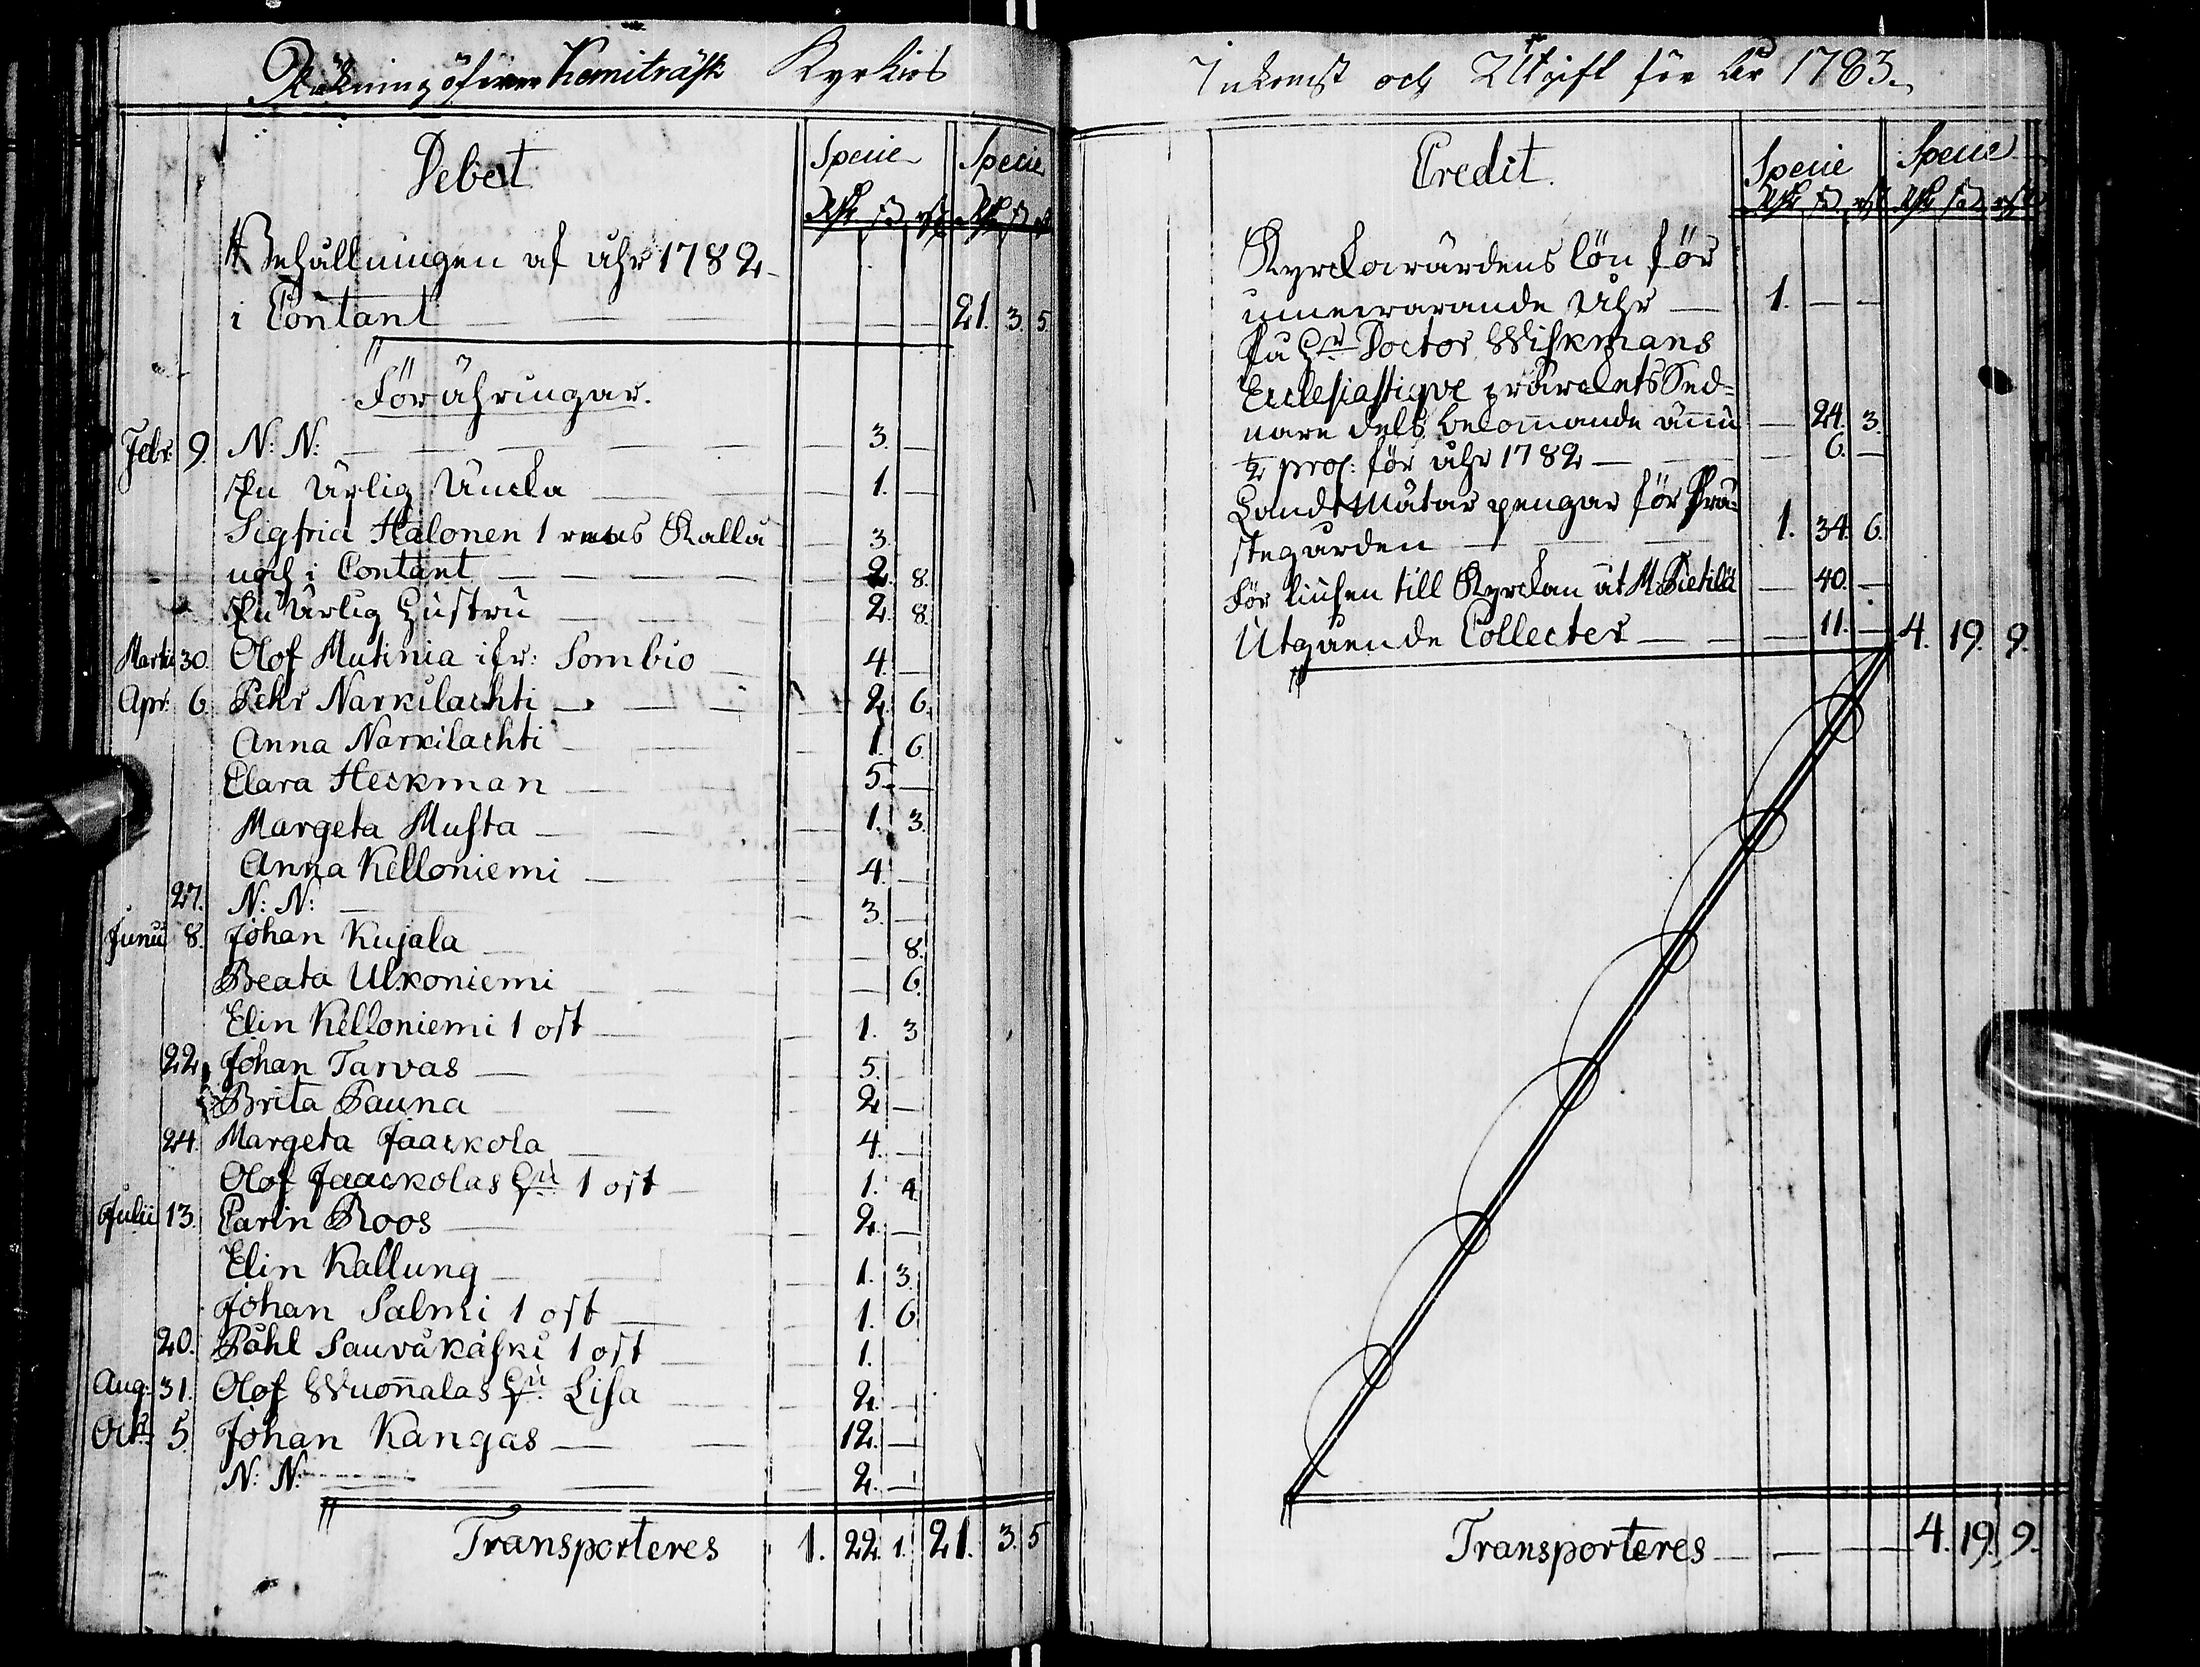 Räkning öfwer Kemiträsk Kyrkios
Debet
Specie Specie
Rdr ß rst Rdr ß rst
Behållningen af åhr 1782
i Contant — — — — — — 21. 3. 5.
Förähringar.
Febr. 9. N: N: — — — — 3. —
En Ärlig Äncka — — — 1. —
Sigfrid Halonen 1 Kalla — 3.
och i Contant — — — — 2. 8.
En Ärlig Hustru — — — 2. 8.
Martii 30. Olof Mutinia ifr: Sombio — 4. —
Apr. 6. Pehr Narkilachti — — — 2. 6.
Anna Narkilachti — — 1. 6.
Clara Heckman — — 5. —
Margeta Musta — — — 1. 3.
Anna Kelloniemi — — 4. —
27. N: N: — — — 3. —
Junii 8. Johan Kujala — — — 8.
Beata Ulkoniemi — — — 6.
Elin Kelloniemi 1 ost — — 1. 3
22. Johan Tarvas — — 5. —
Brita Pauna — — 2. —
24. Margeta Jaackola — — 4. —
Olof Jaackolas Hu 1 ost — 1. 4.
Julii 13. Carin Roos — — 2. —
Elin Kallung — — 1. 3.
Johan Salmi 1 ost — — 1. 6.
20. Påhl Sauvakäski 1 ost — — 1.
Aug. 31. Olof Wuonnalas Hu Lisa — — 2. —
Octb. 5. Johan Kangas — — 12. —
N: N: — — — 2. —
Transporteres 1. 22. 1. 21. 3. 5
Inkomst och Utgift för År 1783.
Credit.
Specie Specie
Rdr ß rst Rdr ß rst
Kyrckovärdens lön för
innevarande Åhr — 1. — —
På Hr Doctor Wiskmans
Ecclesiastique Sed-
nare dels bekommande — 24. 3.
½ pros: för åhr 1782 — — 6. —
Landtmätar pengar för Prä-
stegården — — — 1. 34. 6.
För liusen till Kyrckan åt M: Pietilä — 40. —
Utgående Collecter — — — 11. — 4. 19. 9.
Transporteres — — — 4. 19. 9.